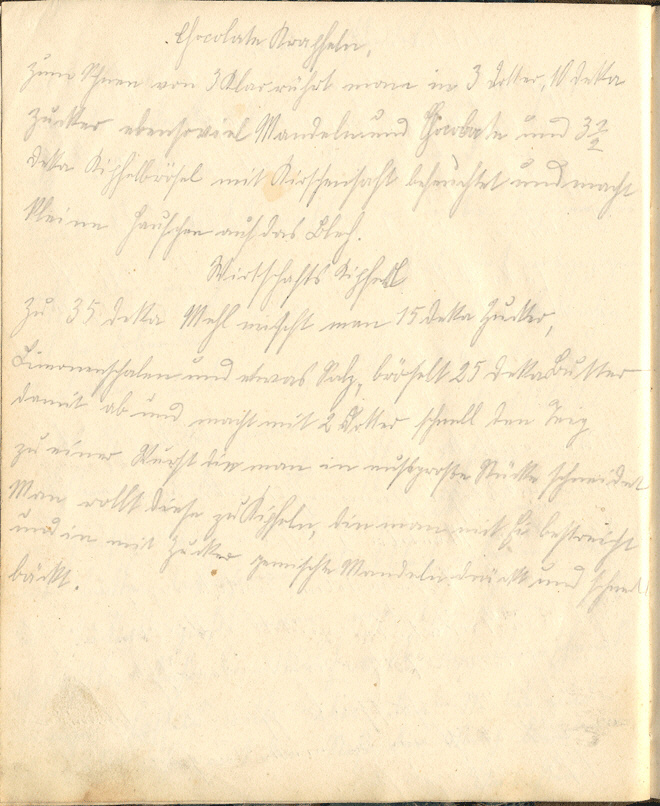 Chocolate Krapfeln.
Zum Schnee von 3 Klar rührt man in 3 Dotter, 10 Dekka
Zucker ebensoviel Mandeln und Chocolate und 3 1/2
Dekka Kipfelbrösel mit Kirschensaft befeuchtet und macht
kleine Häufchen auf das Blech.
Wirtschafts Kipferl
Zu 35 Dekka Mehl mischt man 15 Dekka Zucker,
Limonenschalen und etwas Salz, bröselt 25 Dekka Butter
damit ab und macht mit 2 Dotter schnell den Teig
zu einer Wurst die man in nussgroße Stücke schneidet
Man rollt diese zu Kipfeln, die man mit Ei bestreicht
und in mit Zucker gemischte Mandeln drückt und schnell
bäckt.